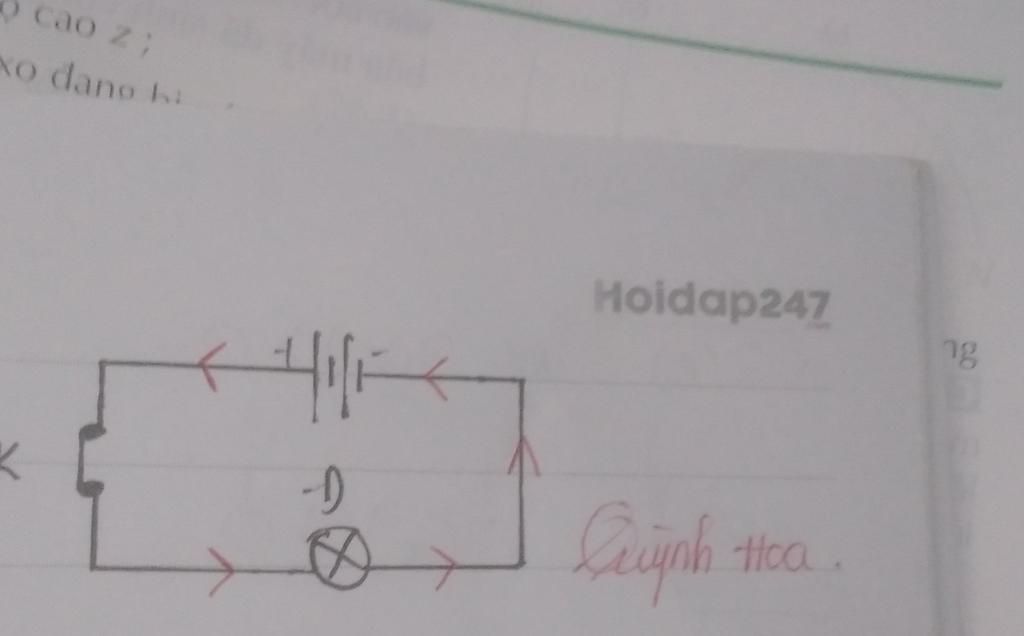 cao z ;
xo đang
Hoidap247
ng
+ -
K
Đ
Quỳnh Hoa .